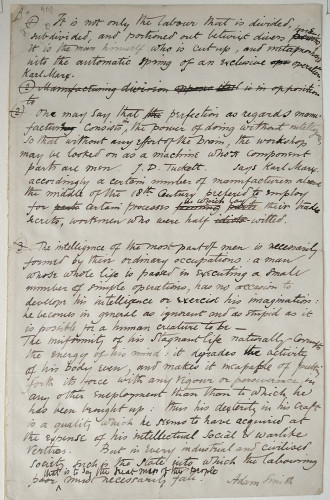 1 It is not only the labour that is divided,
subdivided, and portioned out betwixt divers
it is the man himself who is cut up, and metamorphosed
into the automatic spring of an exclusive operation
Karl Marx.
(2) Manufacturing division is in opposition
to
(2) One may say that the perfection as regards manu-
facturing consists, the power of doing without intellect
so that without any effort of the brain, the workshop
may be looked on as a machine whose component
parts are men. J. D. Tuckett. Says Karl Marx.
accordingly a certain number of manufacturers about
the middle of the 18th Century prefered to employ
for certain processes in which lay their trade
secrets, workmen who were half witted.
3 The intelligence of the most part of men is necessarily
formed by their ordinary occupations: a man
whose whole life is passed in executing a small
number of simple operations, has no occasion to
develope his intelligence or exercise his imagination:
he becomes in general as ignorant and as stupid as it
is possible for a human creature to be —
The uniformity of his stagnant life naturally corrupts
the energy of his mind: it degrades the activity
of his body even, and makes it incapable of putting
forth its force with any vigour or perseverance in
any other employment than than to which he
has been brought up: thus his dexterity in his craft
is a quality which he seems to have acquired at
the expense of his intellectual Social & warlike
Vertues. But in very industrial and civilised
society such is the State into which the labouring
that is to say the great mass of the people
poor must necessarily fall. Adam Smith